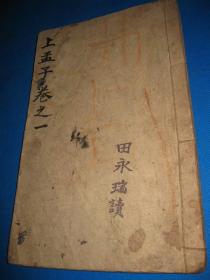 上孟子卷之一
田永瑞讀